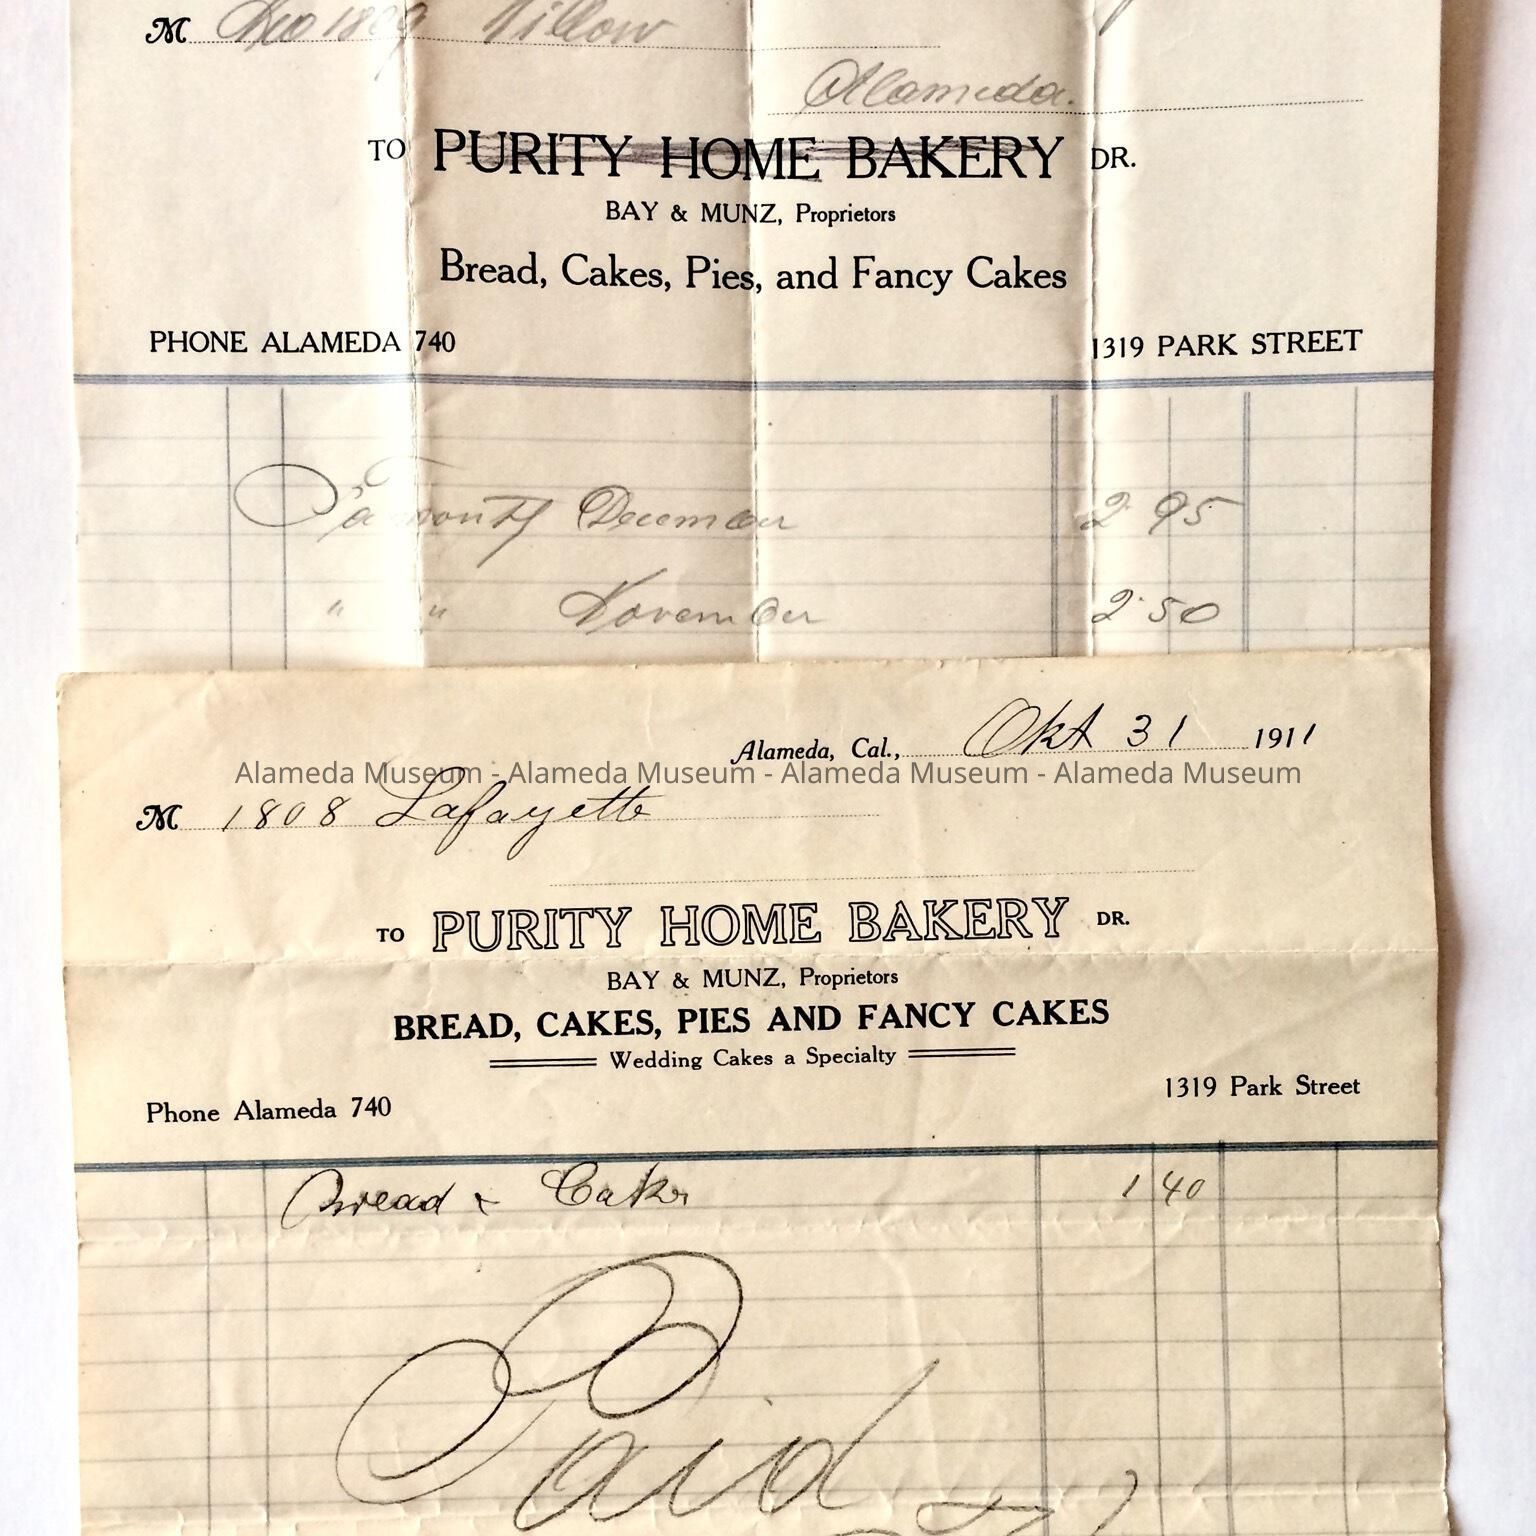 M Willow
Alameda.
TO PURITY HOME BAKERY DR.
BAY & MUNZ, Proprietors
Bread, Cakes, Pies, and Fancy Cakes
PHONE ALAMEDA 740 1319 PARK STREET
a month December 2 95
" " November 2 50
Alameda, Cal., Okt 31 1911
Alameda Museum - Alameda Museum - Alameda Museum - Alameda Museum
M 1808 Lafayette
TO PURITY HOME BAKERY DR.
BAY & MUNZ, Proprietors
BREAD, CAKES, PIES AND FANCY CAKES
Wedding Cakes a Specialty
1319 Park Street
Phone Alameda 740
Bread & Cakes 1 40
Paid